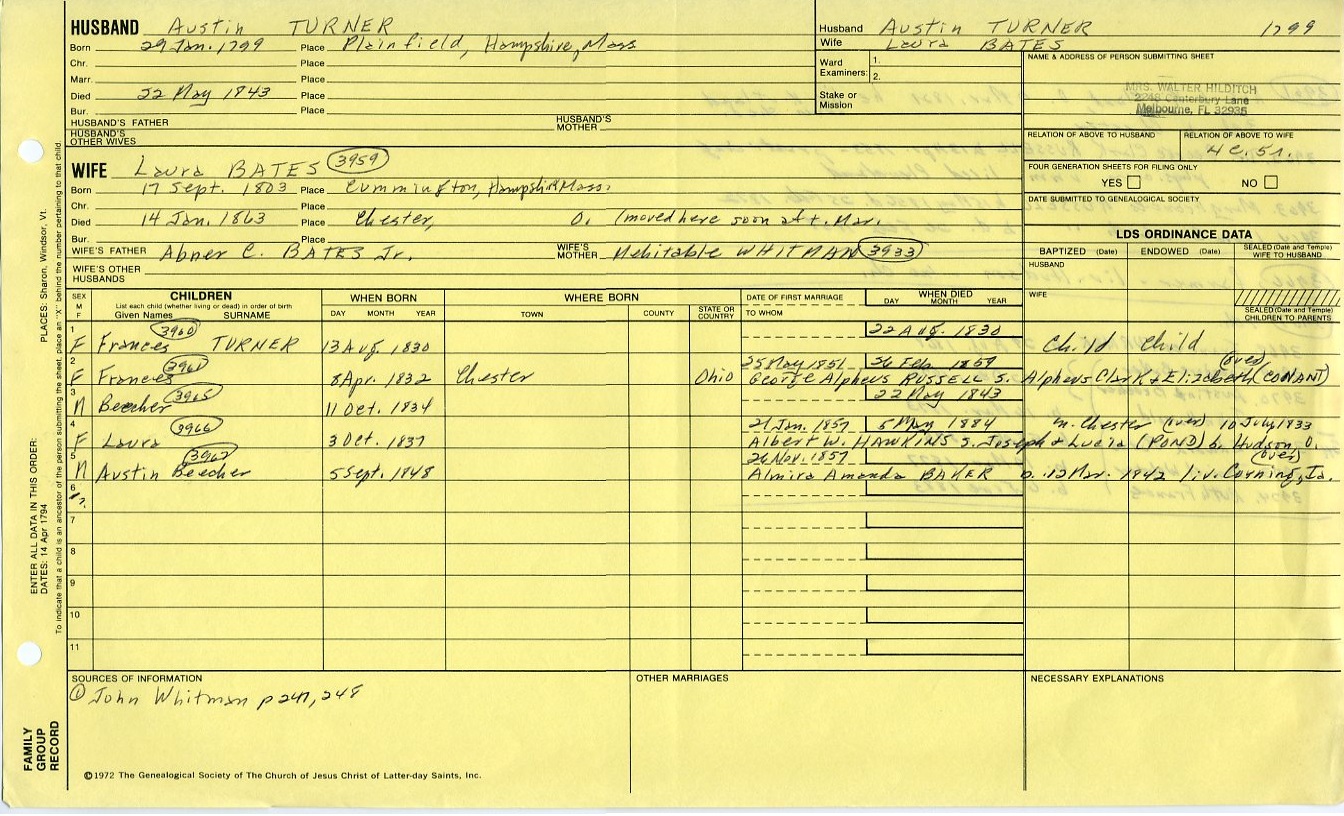 HUSBAND Austin TURNER
Born 29 Jan. 1799 Place Plainfield, Hampshire, Mass
Chr. Place
Marr. Place
Died 22 May 1843 Place
Bur. Place
HUSBAND'S FATHER HUSBAND'S MOTHER
HUSBAND'S OTHER WIVES
Husband Austin TURNER 1799
Wife Laura BATES
Ward Examiners: 1.
2.
Stake or Mission
NAME & ADDRESS OF PERSON SUBMITTING SHEET
MRS. WALTER HILDITCH
2248 Canterbury Lane
Melbourne, FL 32935
RELATION OF ABOVE TO HUSBAND RELATION OF ABOVE TO WIFE
4c. 5r.
FOUR GENERATION SHEETS FOR FILING ONLY
YES NO
DATE SUBMITTED TO GENEALOGICAL SOCIETY
WIFE Laura BATES 3959
Born 17 Sept. 1803 Place Cummington, Hampshire Mass.
Chr. Place
Died 14 Jan. 1863 Place Chester, O. (moved here soon aft. Mar.
Bur. Place
WIFE'S FATHER Abner C. BATES Jr. WIFE'S MOTHER Mehitable WHITMAN 3933
WIFE'S OTHER HUSBANDS
LDS ORDINANCE DATA
BAPTIZED (Date) ENDOWED (Date) SEALED (Date and Temple) WIFE TO HUSBAND
HUSBAND
WIFE
SEALED (Date and Temple) CHILDREN TO PARENTS
SEX M F CHILDREN List each child (whether living or dead) in order of birth Given Names SURNAME WHEN BORN DAY MONTH YEAR WHERE BORN TOWN COUNTY STATE OR COUNTRY DATE OF FIRST MARRIAGE TO WHOM WHEN DIED DAY MONTH YEAR
1 3960 22 Aug. 1830
F Frances TURNER 13 Aug. 1830 Child Child
2 3961 25 May 1851 26 Feb. 1859 (over)
F Frances 8 Apr. 1832 Chester Ohio George Alpheus RUSSELL S. Alpheus Clark & Elizabeth (CONANT)
3 3965 22 May 1843
M Beecher 11 Oct. 1834
4 3966 21 Jan. 1857 5 May 1884 m. Chester (over) 10 July 1833
F Laura 3 Oct. 1837 Albert W. HAWKINS S. Joseph & Lucia (POND) b. Hudson, O.
5 3967 26 Nov. 1857 (over)
M Austin Beecher 5 Sept. 1848 Almira Amanda BAKER b. 12 Mar. 1842 liv. Corning, Ia.
6
7
8
9
10
11
SOURCES OF INFORMATION
① John Whitman p 247, 248
OTHER MARRIAGES
NECESSARY EXPLANATIONS
©1972 The Genealogical Society of The Church of Jesus Christ of Latter-day Saints, Inc.
FAMILY GROUP RECORD
ENTER ALL DATA IN THIS ORDER:
DATES: 14 Apr 1794
PLACES: Sharon, Windsor, Vt.
To indicate that a child is an ancestor of the person submitting the sheet, place an "X" behind the number pertaining to that child.